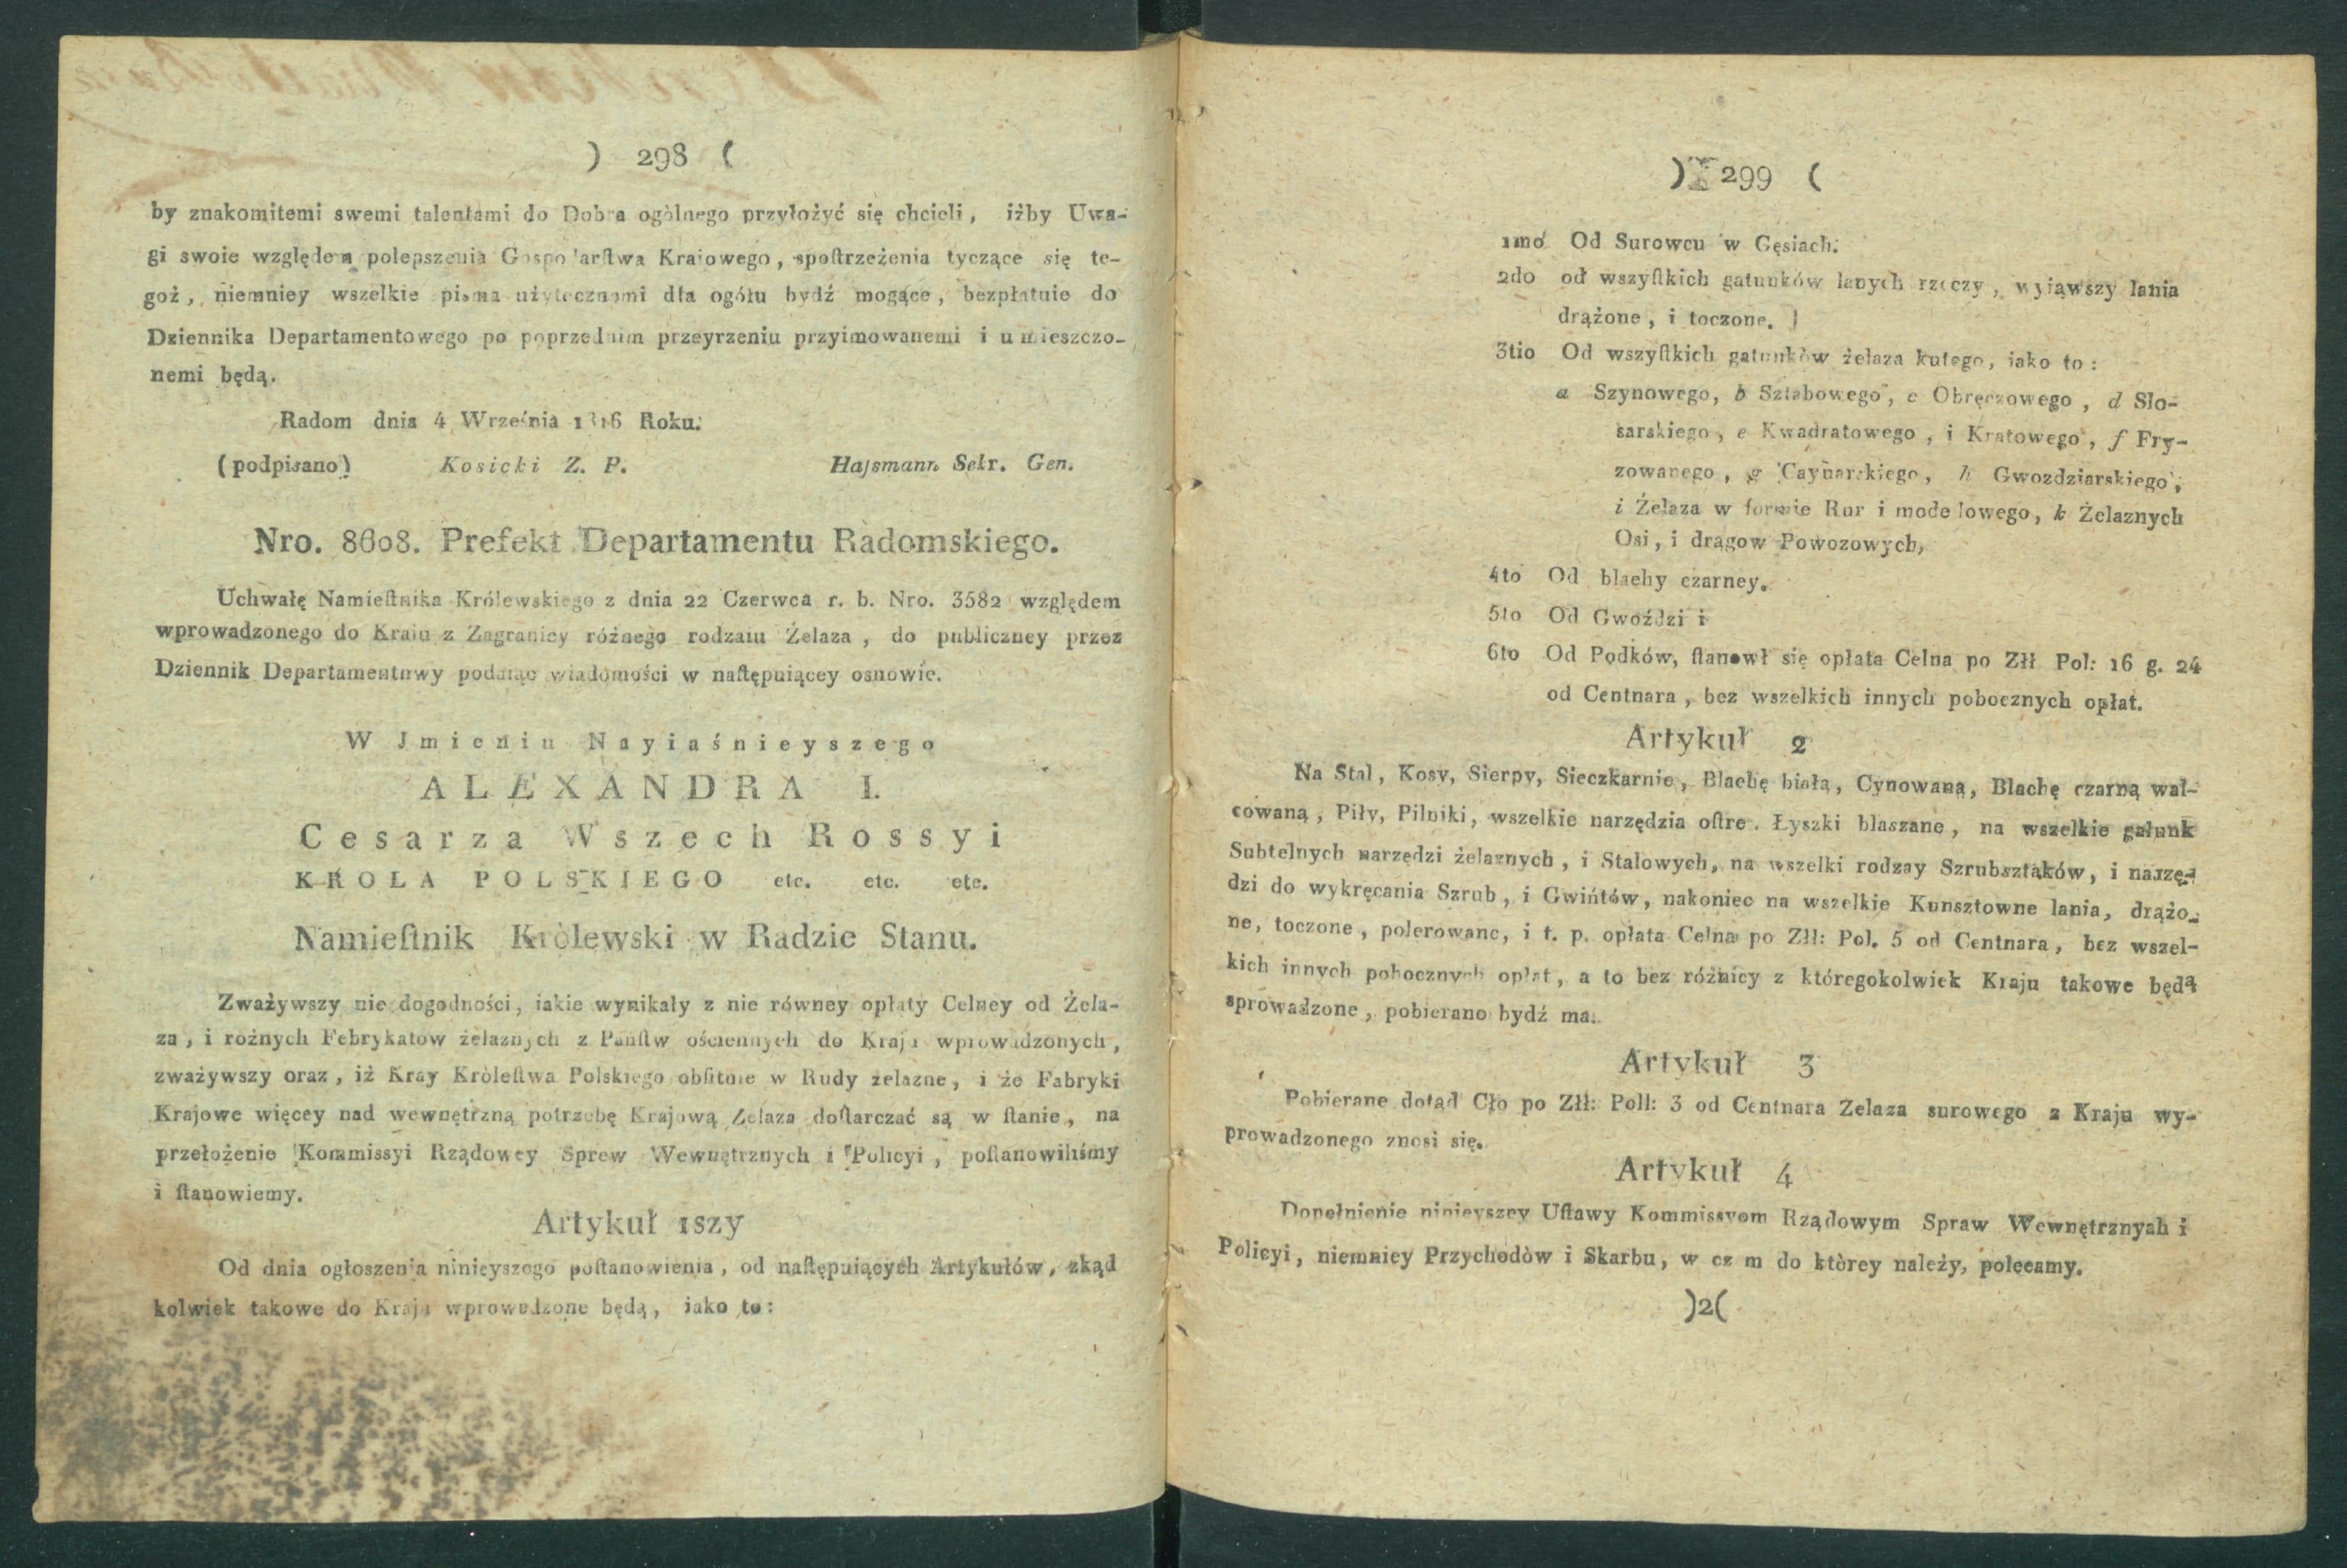 ) 298 (
by znakomitemi swemi talentami do Dobra ogòlnego przyłożyć się chcieli, iżby Uwa-
gi swoie względem polepszenia Gospodarſtwa Kraiowego, spoſtrzeżenia tyczące się te-
goż, niemniey wszelkie pisma użytecznemi dla ogółu bydź mogące, bezpłatnie do
Dziennika Departamentowego po poprzednim przeyrzeniu przyimowanemi i umieszczo-
nemi będą.
Radom dnia 4 Września 1816 Roku.
(podpisano) Kosicki Z. P. Hajsmann Sekr. Gen.
Nro. 8608. Prefekt Departamentu Radomskiego.
Uchwałę Namieſtnika Królewskiego z dnia 22 Czerwca r. b. Nro. 3582 względem
wprowadzonego do Kraiu z Zagranicy różnego rodzaiu Żelaza, do publiczney przez
Dziennik Departamentowy podaiąc wiadomości w naſtępuiącey osnowie.
W Jmieniu Nayiaśnieyszego
ALEXANDRA I.
Cesarza Wszech Rossyi
KROLA POLSKIEGO etc. etc. etc.
Namieſtnik Królewski w Radzie Stanu.
Zważywszy nie dogodności, iakie wynikały z nie równey opłaty Celney od Żela-
za, i rożnych Febrykatow żelaznych z Pańſtw ościennych do Kraju wprowadzonych,
zważywszy oraz, iż Kray Kròleſtwa Polskiego obfituie w Rudy żelazne, i że Fabryki
Krajowe więcey nad wewnętrzną potrzebę Krajową Żelaza doſtarczać są w ſtanie, na
przełożenie Kommissyi Rządowey Spraw Wewnętrznych i Policyi, poſtanowiliśmy
i ſtanowiemy.
Artykuł 1szy
Od dnia ogłoszenia ninieyszego poſtanowienia, od naſtępuiących Artykułów, zkąd
kolwiek takowe do Kraju wprowadzone będą, iako to:
) 299 (
1mo Od Surowcu w Gęsiach.
2do od wszyſtkich gatunków lanych rzeczy, wyiąwszy lania
drążone, i toczone.
3tio Od wszyſtkich gatunkòw żelaza kutego, iako to:
a Szynowego, b Sztabowego, c Obręczowego, d Slo-
sarskiego, e Kwadratowego, i Kratowego, f Fry-
zowanego, g Caynarskiego, h Gwozdziarskiego,
i Żelaza w formie Rur i modelowego, k Żelaznych
Osi, i dragow Powozowych,
4to Od blachy czarney.
5to Od Gwoździ i
6to Od Podków, ſtanowł się opłata Celna po Złł Pol: 16 g. 24
od Centnara, bez wszelkich innych pobocznych opłat.
Artykuł 2
Na Stal, Kosy, Sierpy, Sieczkarnie, Blachę białą, Cynowaną, Blachę czarną wal-
cowaną, Piły, Pilniki, wszelkie narzędzia oſtre. Łyszki blaszane, na wszelkie gatunk
Subtelnych narzędzi żelaznych, i Stalowych, na wszelki rodzay Szrubsztaków, i narzę-
dzi do wykręcania Szrub, i Gwińtów, nakoniec na wszelkie Kunsztowne lania, drążo-
ne, toczone, polerowane, i t. p. opłata Celna po Złł: Pol. 5 od Centnara, bez wszel-
kich innych pobocznych opłat, a to bez różnicy z któregokolwiek Kraju takowe będą
sprowadzone, pobierano bydź ma.
Artykuł 3
Pobierane dotąd Cło po Złł: Poll: 3 od Centnara Żelaza surowego z Kraju wy-
prowadzonego znosi się.
Artykuł 4
Dopełnienie ninieyszey Uſtawy Kommissyom Rządowym Spraw Wewnętrznyah i
Policyi, niemniey Przychodòw i Skarbu, w cz m do ktòrey należy, polęcamy.
)2(